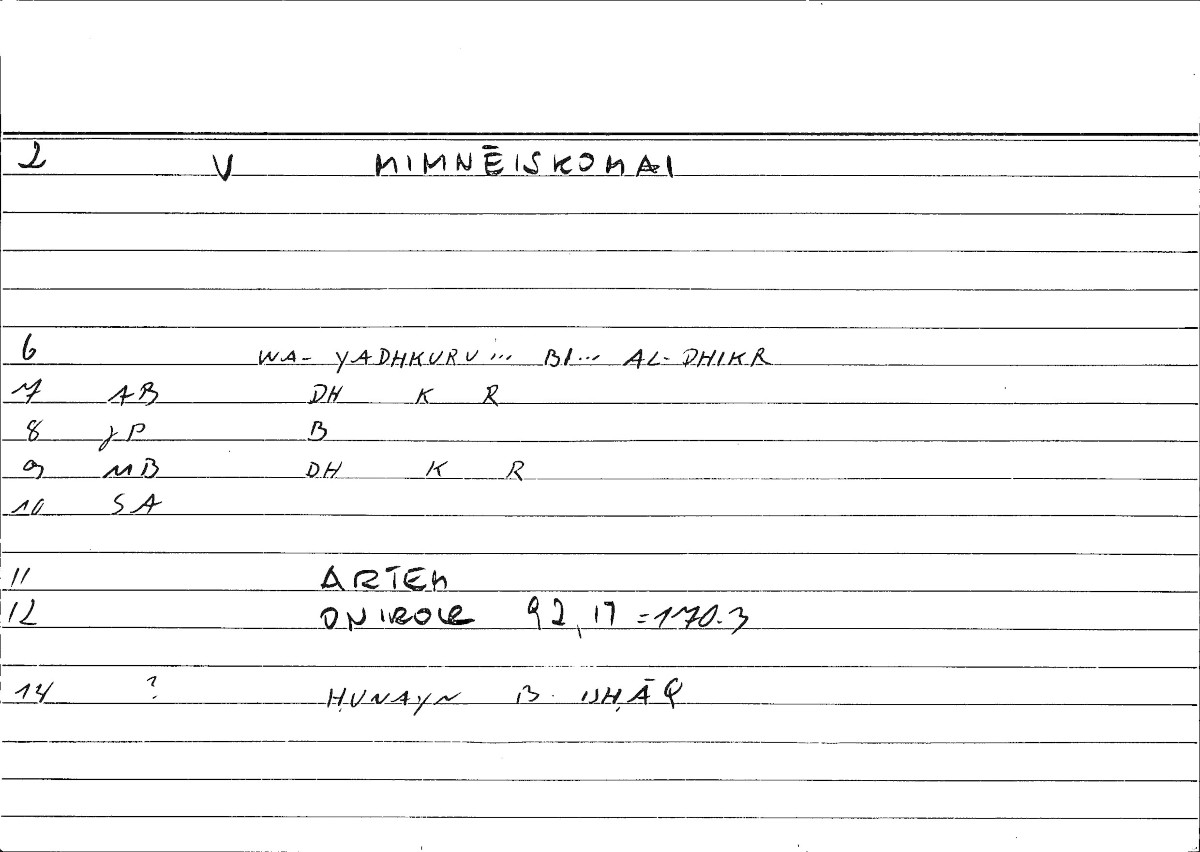 2 V MIMNĒISKOMAI
6 WA- YADHKURU... BI... AL-DHIKR
7 AB DH K R
8 JP B
9 MB DH K R
10 SA
11 ARTEM
12 ONIROCR 92,17 =170.3
14 ? ḤUNAYN B. ISḤĀQ